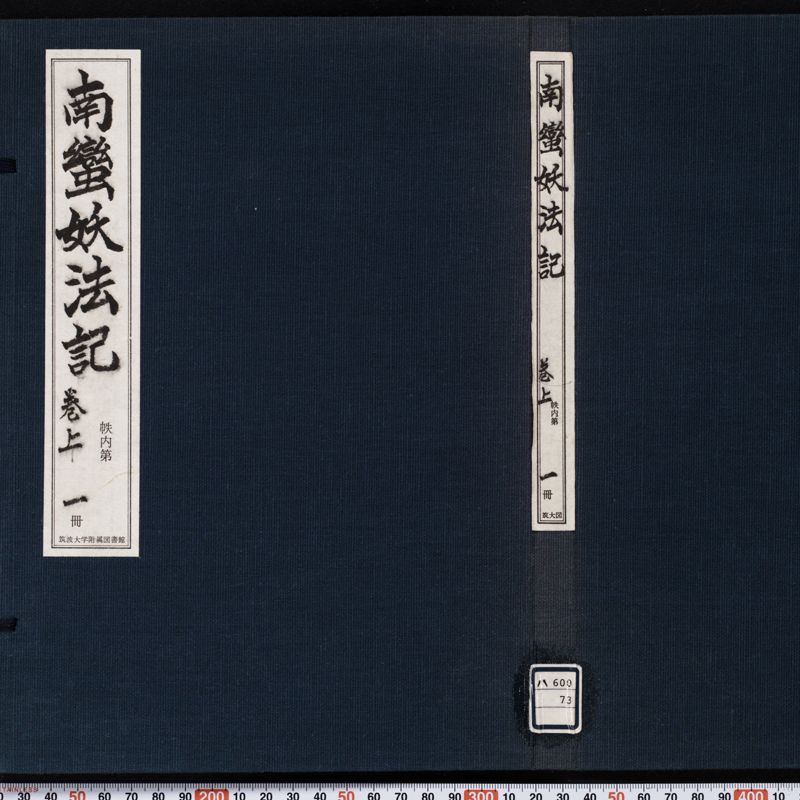 南蠻妖法記
巻上
帙内第
一
冊
筑波大学附属図書館
南蠻妖法記
巻上
帙内第
一
冊
筑大図
ハ 600
73
30 40 50 60 70 80 90 200 10 20 30 40 50 60 70 80 90 300 10 20 30 40 50 60 70 80 90 400 10